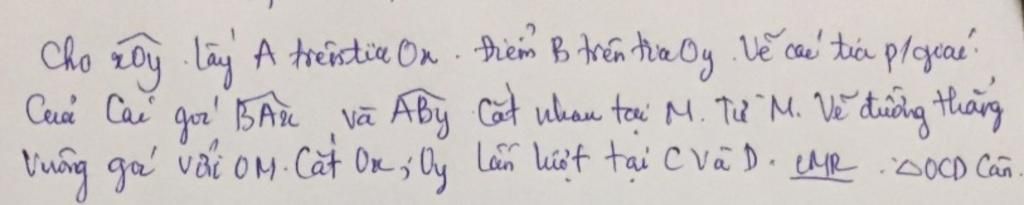 Cho xOy. lấy A trên tia Ox. điểm B trên tia Oy. Vẽ các tia p/giác
Của Các góc BAx và ABy Cắt nhau tại M. Từ M. Vẽ đường thẳng
Vuông góc với OM. Cắt Ox, Oy lần lượt tại C Và D. CMR. △OCD Cân.